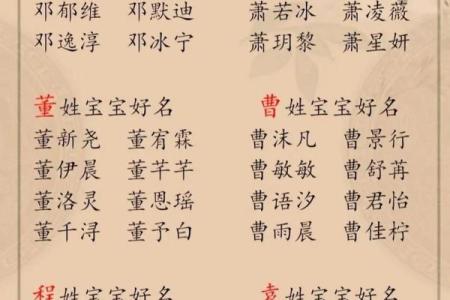 邓郁维 邓默迪 萧若冰 萧凌薇
邓逸淳 邓冰宁 萧玥黎 萧星妍
董姓宝宝好名 曹姓宝宝好名
董新尧 董宥霖 曹沫凡 曹景行
董伊晨 董芊芊 曹敏敏 曹舒苒
董洛灵 董恩瑶 曹语汐 曹君怡
董千浔 董予白 曹雨晨 曹佳柠
程姓宝宝好名 袁姓宝宝好名